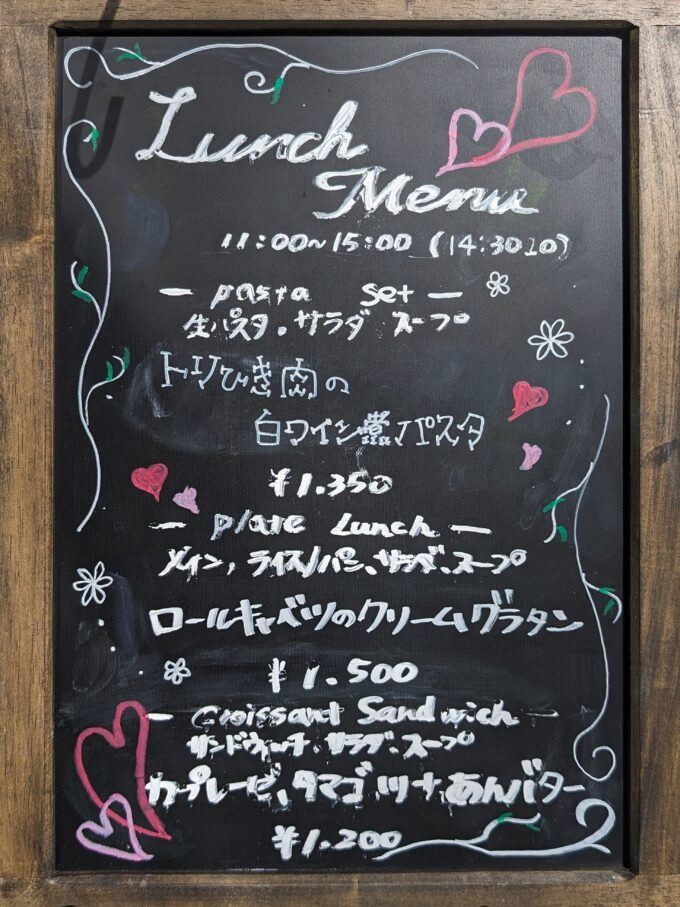 Lunch
Menu
11:00~15:00 (14:30LO)
— pasta set —
生パスタ、サラダ スープ
トリひき肉の
白ワイン煮パスタ
¥1.350
— plate Lunch —
メイン、ライス/パン、サラダ、スープ
ロールキャベツのクリームグラタン
¥1.500
— Croissant Sandwich —
サンドウィッチ、サラダ、スープ
カープレーゼ、タマゴ、ツナ、あんバター
¥1.200